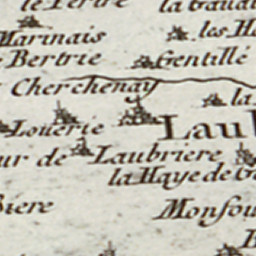 le Tertre
les H
Marinais
Bertrie
Gentillé
Cherchenay
la
Louerie
Laub
ur de Laubriere
la Haye de G
Biere
Monfou